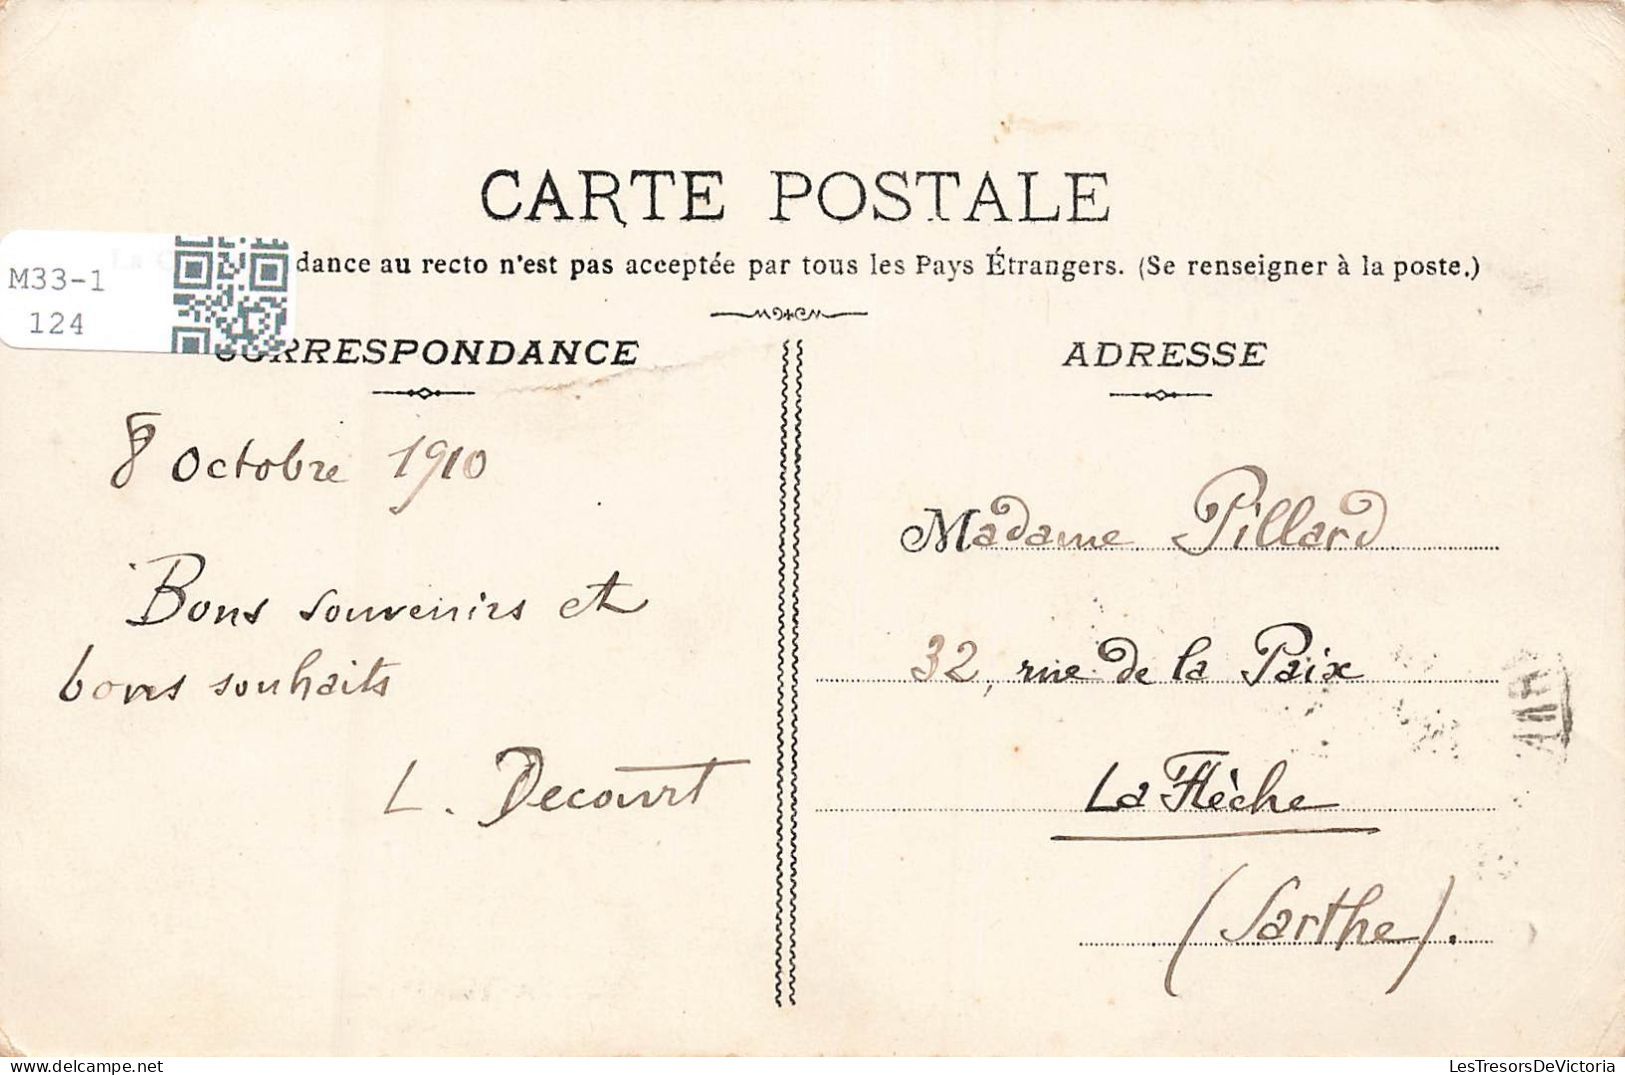 CARTE POSTALE
dance au recto n'est pas acceptée par tous les Pays Étrangers. (Se renseigner à la poste.)
M33-1
124
CORRESPONDANCE
8 Octobre 1910
Bons souvenirs et
bons souhaits
L. Decourt
ADRESSE
Madame Pillard
32, rue de la Paix
La Flèche
(Sarthe).
LesTresorsDeVictoria
delcampe.net